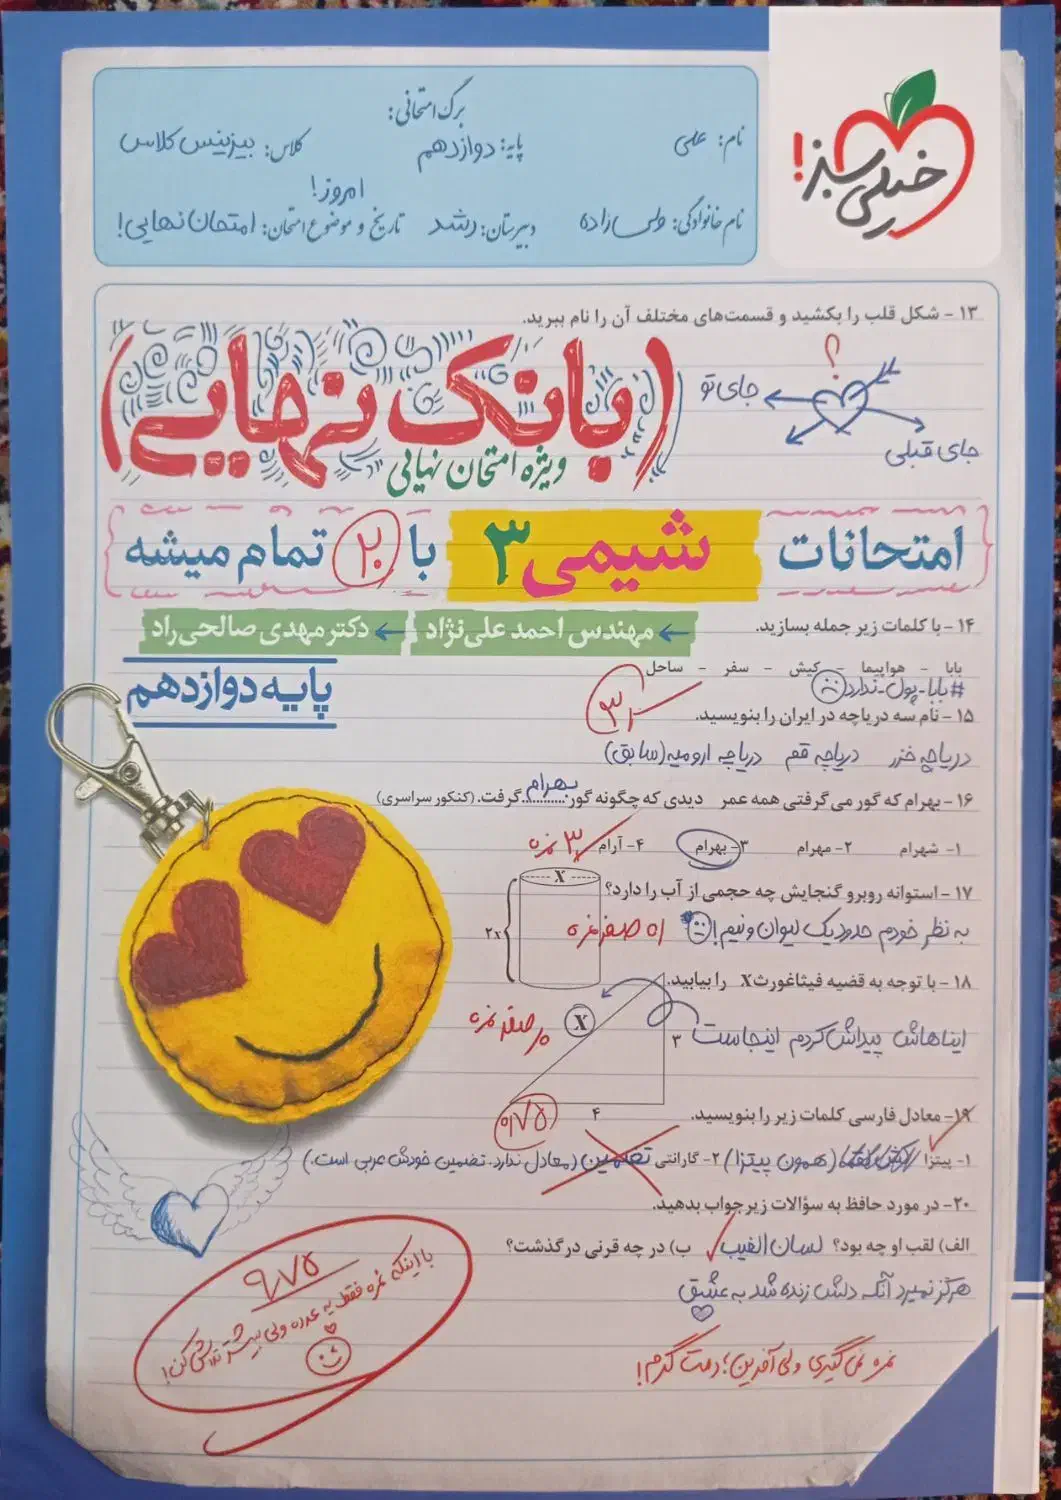 خیلی سبز!
برگ امتحانی:
نام: علی
پایه: دوازدهم
کلاس: بیزینس کلاس
نام خانوادگی: ولی‌زاده
دبیرستان: رشد
تاریخ و موضوع امتحان: امتحان نهایی!
امروز!
۱۳- شکل قلب را بکشید و قسمت‌های مختلف آن را نام ببرید.
؟
جای تو
جای قبلی
(بانک نهایی)
ویژه امتحان نهایی
امتحانات شیمی ۳ با ۲۰ تمام میشه
۱۴- با کلمات زیر جمله بسازید.
مهندس احمد علی‌نژاد
دکتر مهدی صالحی‌راد
بابا - هواپیما - کیش - سفر - ساحل
#بابا-پول-ندارد
پایه دوازدهم
۱۵- نام سه دریاچه در ایران را بنویسید.
دریاچه خزر دریاچه قم دریاچه ارومیه (سابق)
۱۶- بهرام که گور می‌گرفتی همه عمر دیدی که چگونه گور بهرام گرفت. (کنکور سراسری)
۱- شهرام ۲- مهرام ۳- بهرام ۴- آرام
۳ نمره
۱۷- استوانه روبرو گنجایش چه حجمی از آب را دارد؟
X
۲x
به نظر خودم حدود یک لیوان و نیم!
صفر نمره
۱۸- با توجه به قضیه فیثاغورث X را بیابید.
X
ایناهاش پیداش کردم اینجاست
۳
۴
صفر نمره
۱۹- معادل فارسی کلمات زیر را بنویسید.
۰/۷۵
۱- پیتزا (همون پیتزا) ۲- گارانتی تضمین (معادل ندارد. تضمین خودش عربی است.)
۲۰- در مورد حافظ به سؤالات زیر جواب بدهید.
الف) لقب او چه بود؟ لسان الغیب ب) در چه قرنی درگذشت؟
هرگز نمیرد آنکه دلش زنده شد به عشق
۹/۷۵
با اینکه نمره فقط یه عدده ولی بیشتر تلاش کن!
نمره نمی‌گیری ولی آفرین؛ دمت گرم!